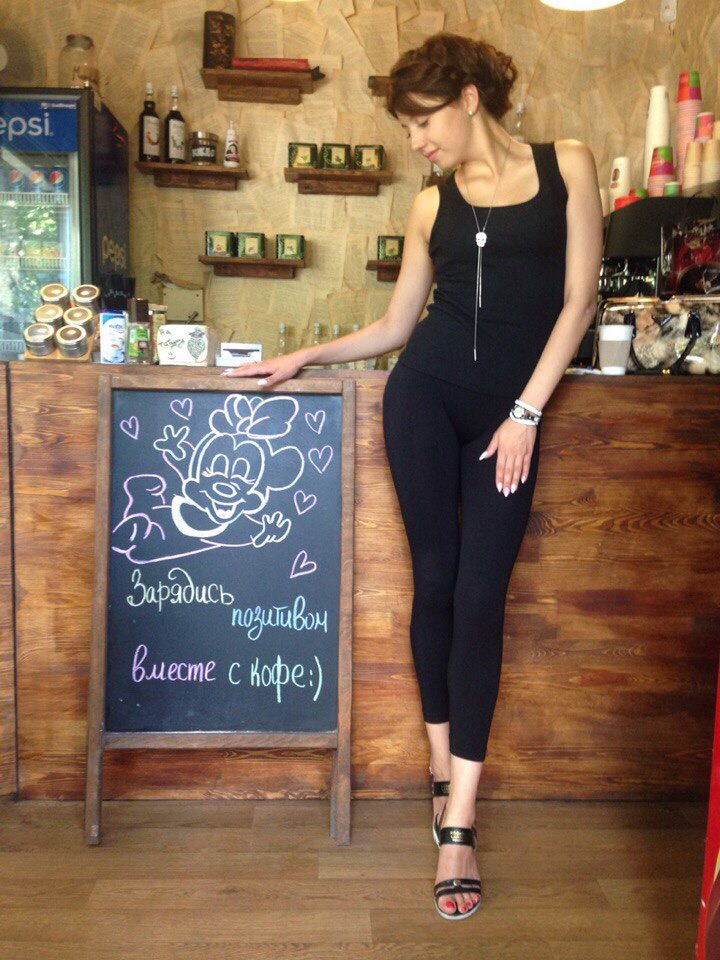 epsi
pepsi
Зарядись
позитивом
вместе с кофе:)